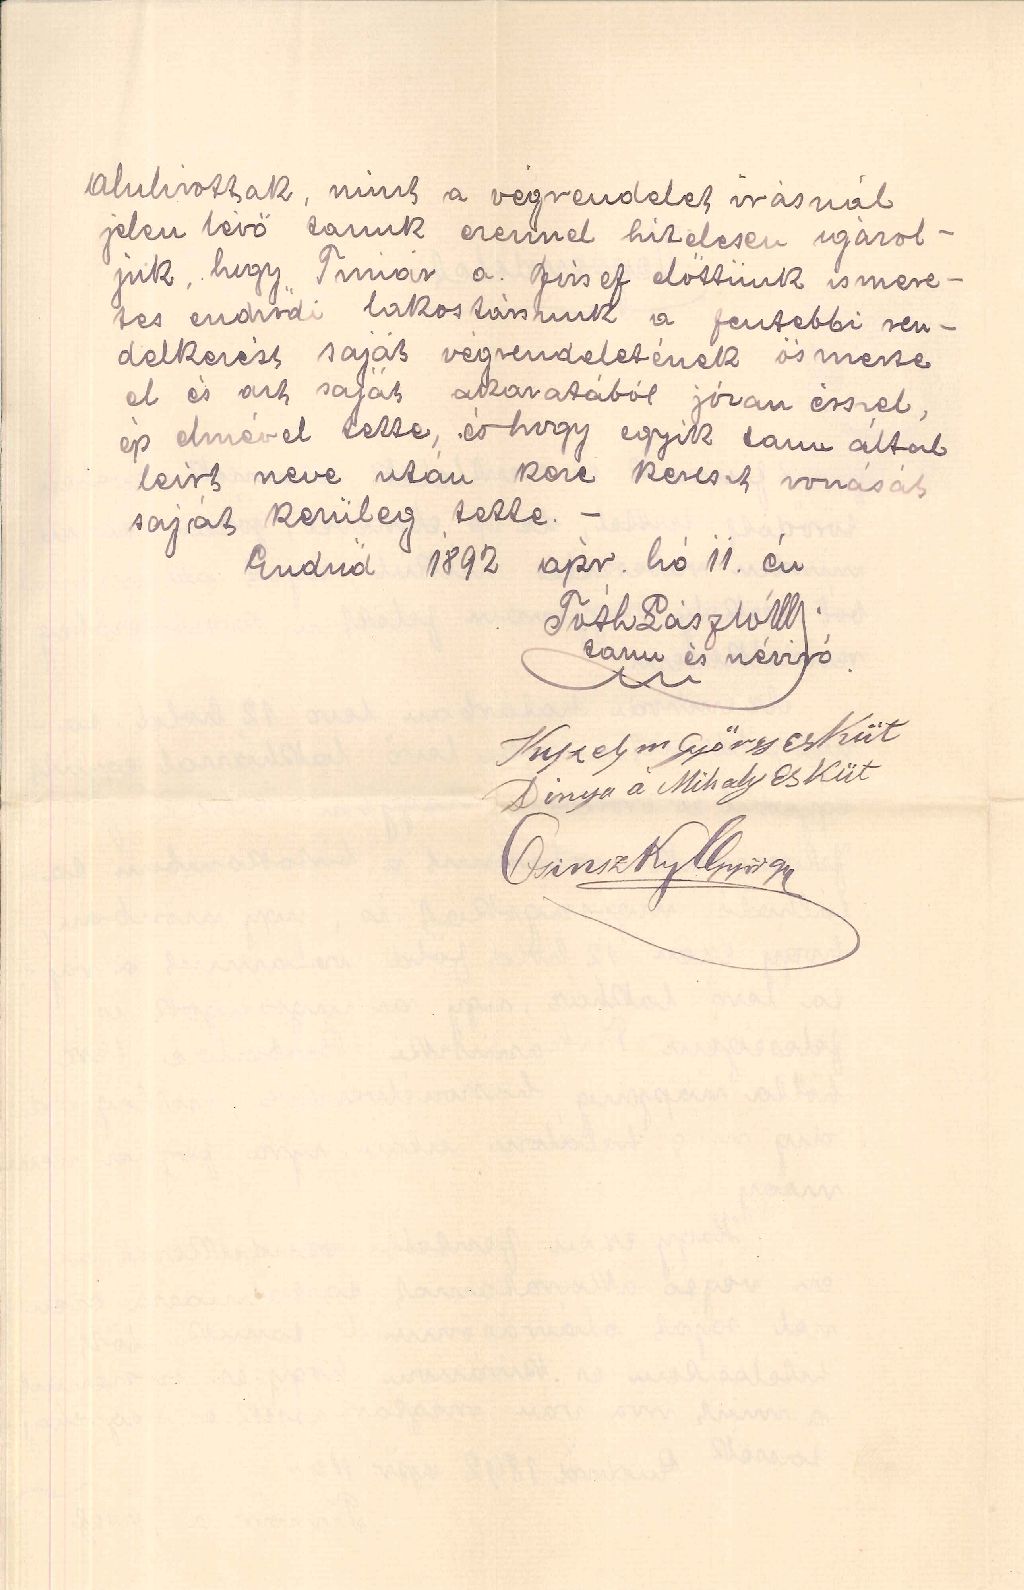 Alulirottak, mint a végrendelet irásnál
jelen lévő tanuk ezennel hitelesen igazol-
juk, hogy Timár a. József előttünk ismere-
tes endrődi lakostársunk a fentebbi ren-
delkezést saját végrendeletének ösmerte
el és azt saját akaratából józan ésszel,
ép elmével tette, és hogy egyik tanu által
leirt neve után keze kereszt vonását
saját kezüleg tette. -
Endrőd 1892 ápr. hó 11. én
Tóth László
tanu és néviró.
György esküt
Dinya á Mihaly Esküt
Csinszky György